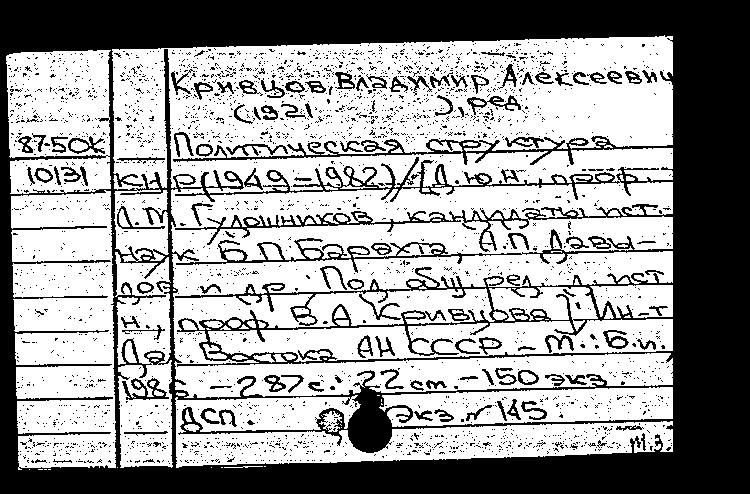 Кривцов, Владимир Алексеевич
(1921 ), ред
87-50к Политическая структура
10131 КНР (1949-1982) / [Д.ю.н., проф.
Л.М. Гудошников, кандидаты ист.
наук Б.П. Барахта, А.П. Давы-
дов и др.; Под общ. ред. д. ист
н., проф. В.А. Кривцова]; Ин-т
Дал. Востока АН СССР. - М.: Б.и.,
1986. - 287 с.; 22 см. - 150 экз.
ДСП. Экз. № 145.
М.З.